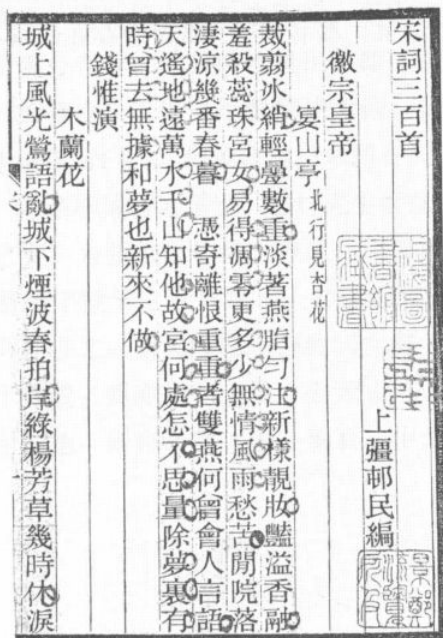 宋詞三百首
上彊邨民編
徽宗皇帝
宴山亭 北行見杏花
裁翦冰綃輕疊數重淡著燕脂勻注新樣靚妝豔溢香融
羞殺蕊珠宮女易得凋零更多少無情風雨愁苦閒院落
淒涼幾番春暮　憑寄離恨重重者雙燕何曾會人言語
天遙地遠萬水千山知他故宮何處怎不思量除夢裏有
時曾去無據和夢也新來不做
錢惟演
木蘭花
城上風光鶯語亂城下煙波春拍岸綠楊芳草幾時休淚